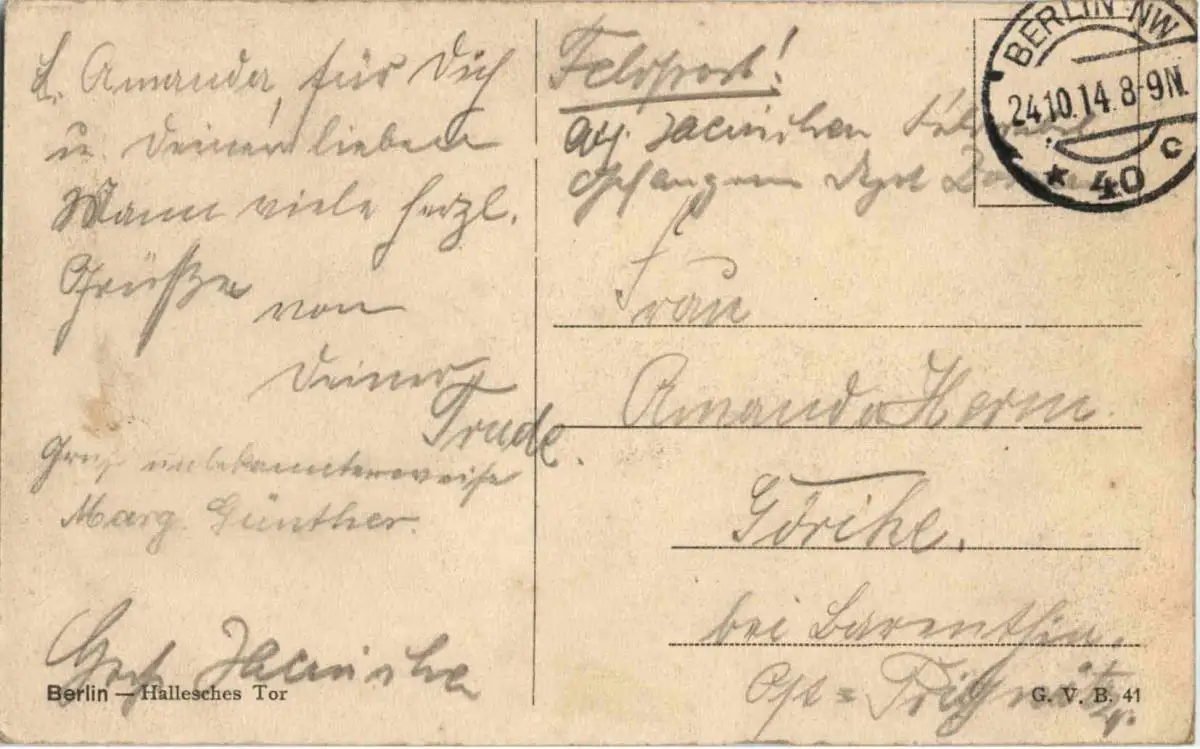 L. Amanda, für Dich
u. Deinen lieben
Mann viele herzl.
Grüße von
Deiner
Trude.
Gruß unbekannterweise
Marg. Günther.
Berlin — Hallesches Tor
Feldpost!
BERLIN NW
24.10.14. 8-9N.
* 40 c
Frau
Amanda Herm
Görike.
bei Barenthin.
Ost = Prignitz.
G. V. B. 41